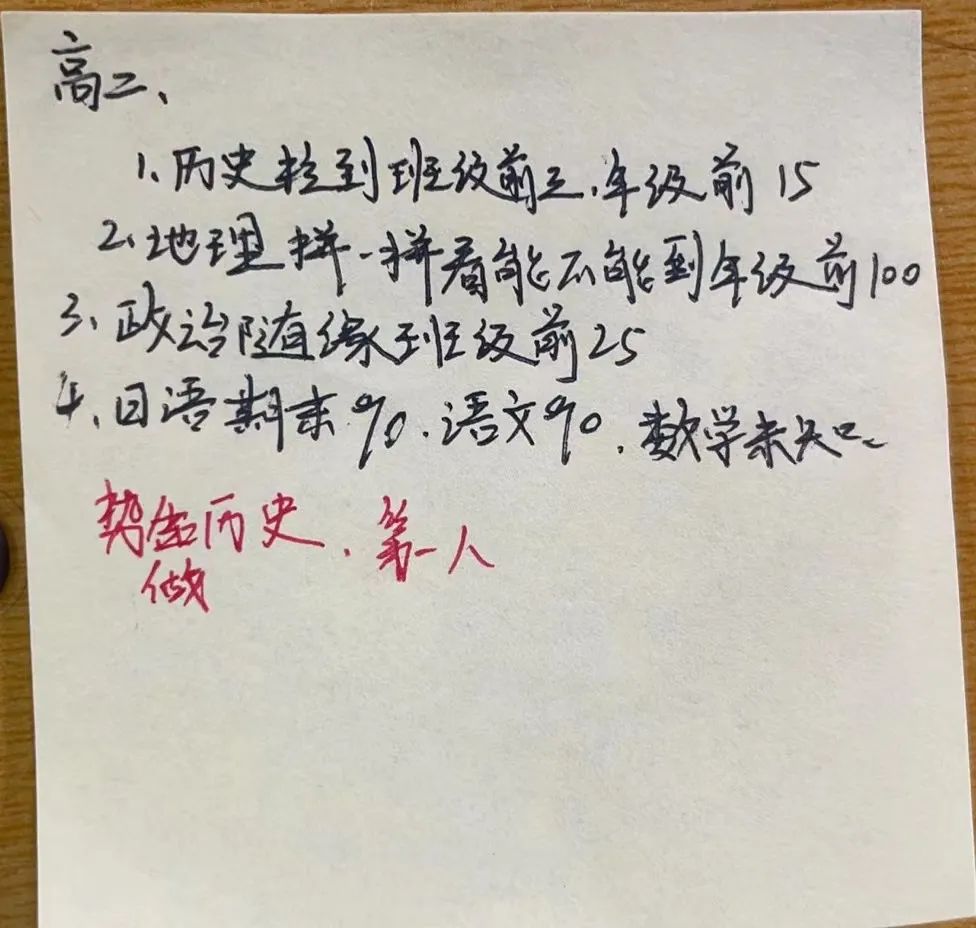 高二、
1、历史抢到班级前三、年级前15
2、地理拼一拼看能不能到年级前100
3、政治随缘到班级前25
4、日语期末90、语文90、数学未知
势历史、第一人
做